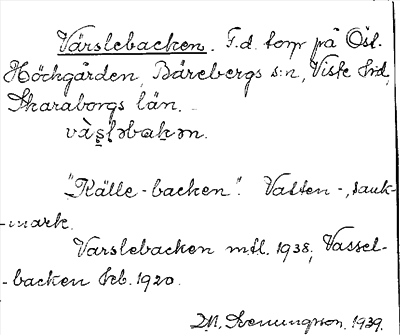 Värslebacken. F.d. torp på Öst.
Höchgården, Bärebergs s:n, Viste hd,
Skaraborgs län.
và̀ṣləbakən.
"Källe-backen". Vatten-, sank-
-mark.
Varslebacken mtl. 1938, Vassel-
-backen hb. 1920.
1939.